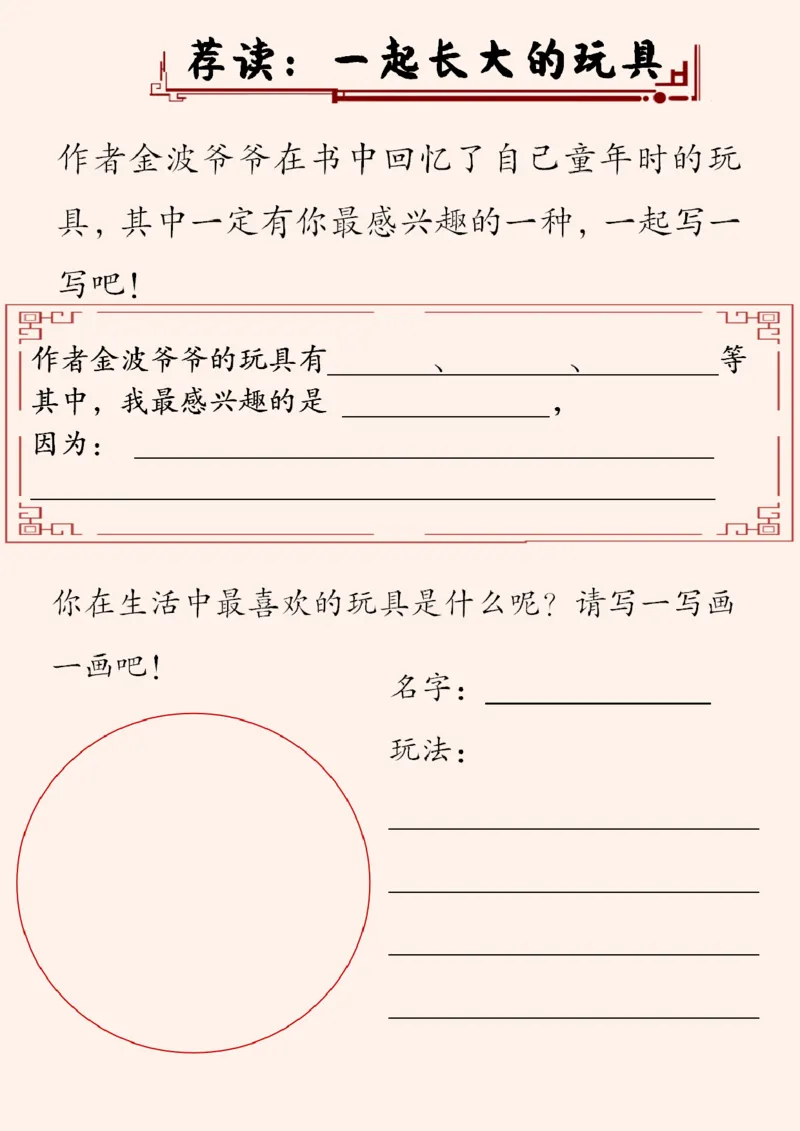 荐读：一起长大的玩具
作者金波爷爷在书中回忆了自己童年时的玩
具，其中一定有你最感兴趣的一种，一起写一
写吧！
作者金波爷爷的玩具有________、________、________等
其中，我最感兴趣的是 ______________，
因为：
你在生活中最喜欢的玩具是什么呢？请写一写画
一画吧！
名字：______________
玩法：